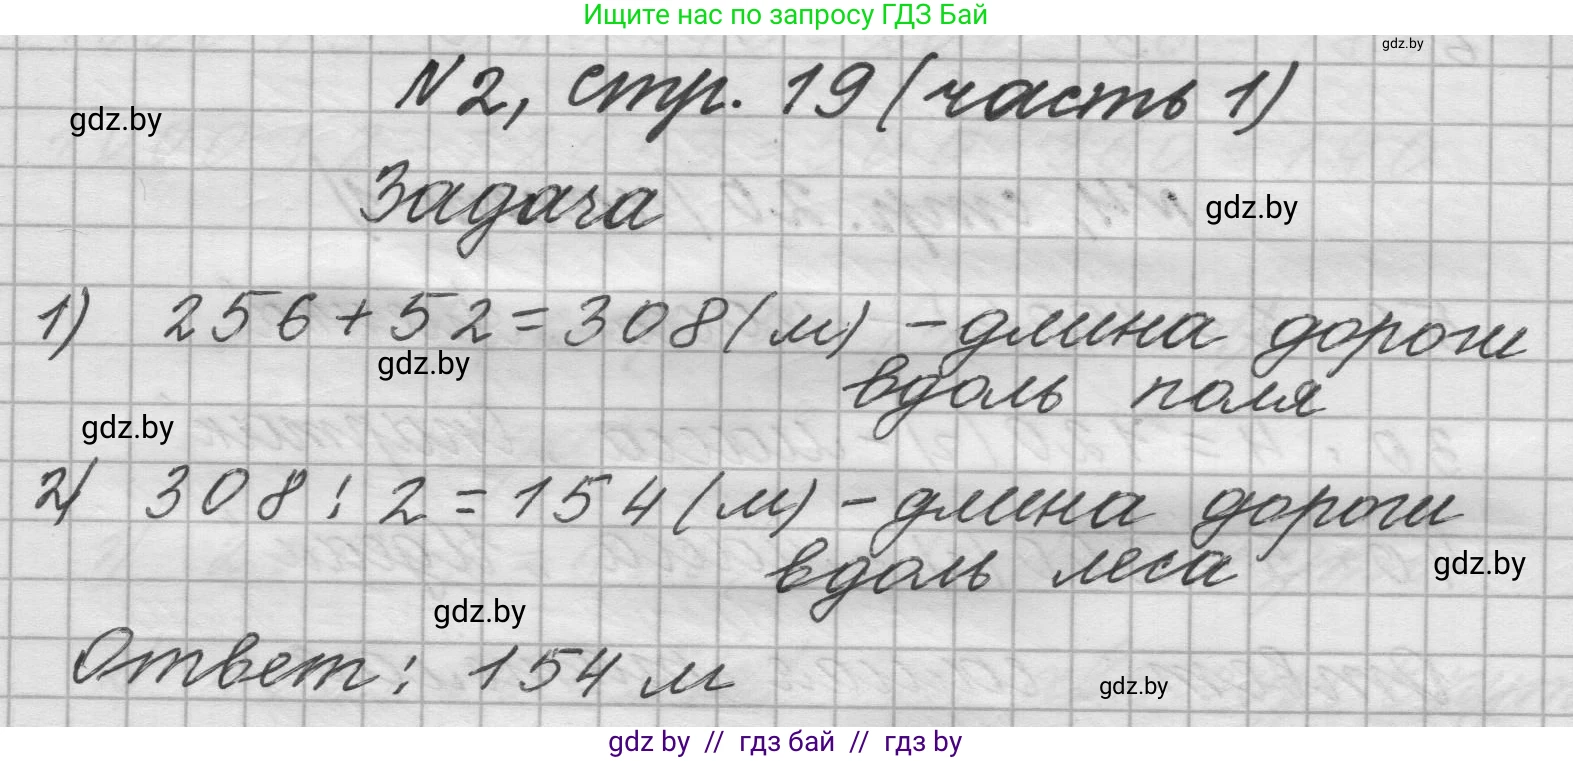 Ищите нас по запросу ГДЗ Бай
gdz.by
N2, стр. 19 (часть 1)
gdz.by
Задача
gdz.by
1) 256+52=308(м) - длина дороги
вдоль поля
gdz.by
gdz.by
2) 308:2=154(м) - длина дороги
вдоль леса
gdz.by
gdz.by
Ответ: 154 м
gdz.by
gdz by // гдз бай // гдз by